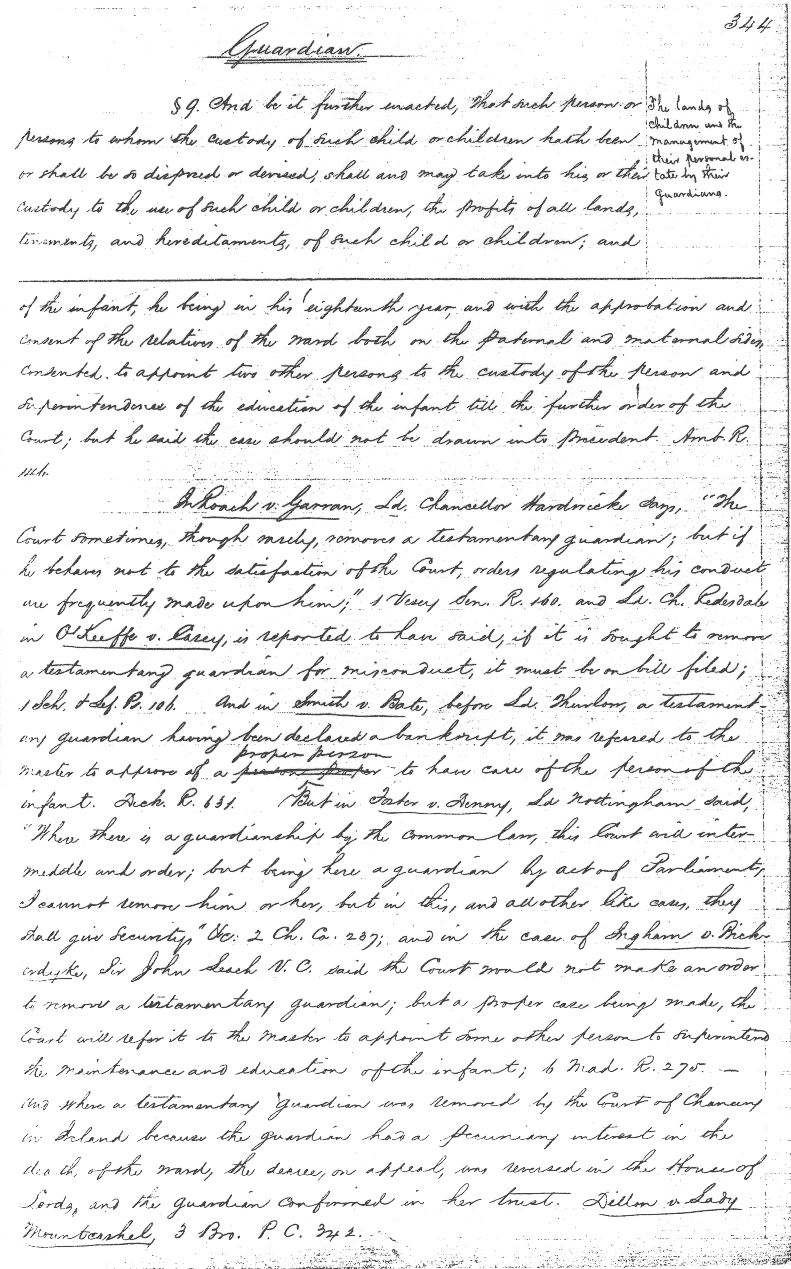 344
Guardian.
§ 9. And be it further enacted, That such person or
persons to whom the custody of such child or children hath been
or shall be so disposed or devised, shall and may take into his or their
custody to the use of such child or children, the profits of all lands,
tenements, and hereditaments, of such child or children; and
The lands of
children and the
management of
their personal es-
tate by their
guardians.
of the infant, he being in his eighteenth year, and with the approbation and
consent of the relatives of the ward both on the paternal and maternal sides,
consented to appoint two other persons to the custody of the person and
superintendence of the education of the infant till the further order of the
Court; but he said the case should not be drawn into precedent. Amb. R.
In Roach v. Garvan, Ld. Chancellor Hardwicke says, "The
Court sometimes, though rarely, removes a testamentary guardian; but if
he behaves not to the satisfaction of the Court, orders regulating his conduct
are frequently made upon him;" 1 Vesey Sen. R. 160. and Ld. Ch. Redesdale
in O'Keeffe v. Casey, is reported to have said, if it is sought to remove
a testamentary guardian for misconduct, it must be on bill filed;
1 Sch. & Lef. R. 106. And in Smith v. Bate, before Ld. Thurlow, a testament-
ary guardian having been declared a bankrupt, it was referred to the
proper person
master to approve of a person proper to have care of the person of the
infant. Dick. R. 631. But in Foster v. Denny, Ld Nottingham said,
"Where there is a guardianship by the common law, this Court will inter-
meddle and order; but being here a guardian by act of Parliament,
I cannot remove him or her, but in this, and all other like cases, they
shall give security," &c: 2 Ch. Ca. 237; and in the case of Ingham v. Bick-
erdyke, Sir John Leach V. C. said the Court would not make an order
to remove a testamentary guardian; but a proper case being made, the
Court will refer it to the master to appoint some other person to superintend
the maintenance and education of the infant; 6 Mad. R. 275. —
And where a testamentary guardian was removed by the Court of Chancery
in Ireland because the guardian had a pecuniary interest in the
death of the ward, the decree, on appeal, was reversed in the House of
Lords, and the guardian confirmed in her trust. Dillon v. Lady
Mountcashel, 3 Bro. P. C. 342.